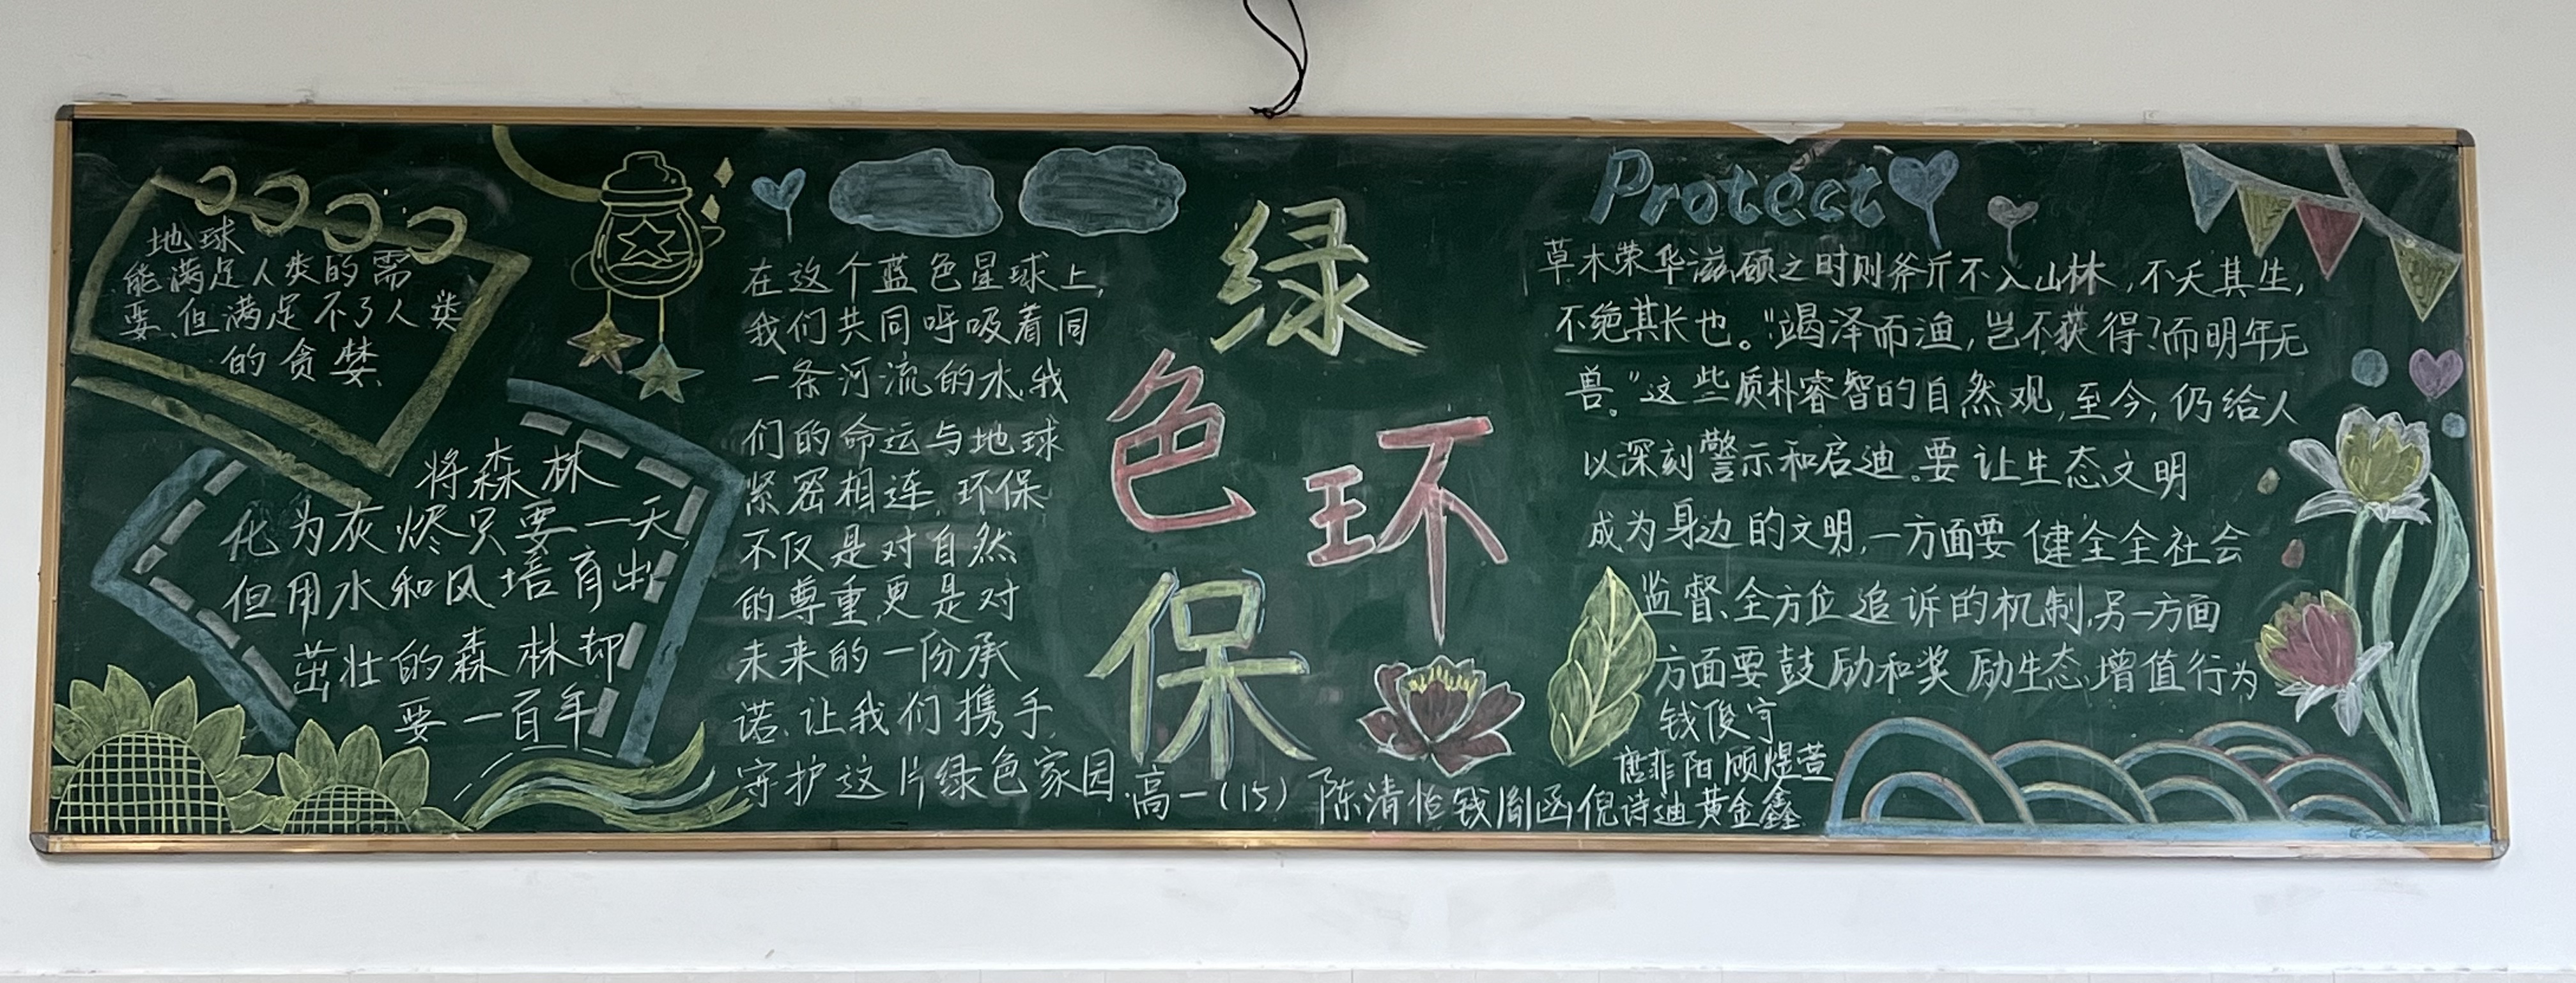 地球
能满足人类的需
要、但满足不了人类
的贪婪、
将森林
化为灰烬只要一天,
但用水和风培育出
茁壮的森林却
要一百年
在这个蓝色星球上,
我们共同呼吸着同
一条河流的水,我
们的命运与地球
紧密相连,环保
不仅是对自然
的尊重,更是对
未来的一份承
诺、让我们携手
守护这片绿色家园.
绿
色
环
保
Protect
草木荣华滋硕之时则斧斤不入山林,不夭其生,
不绝其长也。"竭泽而渔,岂不获得?而明年无
兽。"这些质朴睿智的自然观,至今,仍给人
以深刻警示和启迪。要让生态文明
成为身边的文明,一方面要健全全社会
监督、全方位追诉的机制,另一方面
方面要鼓励和奖励生态增值行为
钱俊宇
唐菲阳顾煜萱
高一(15) 陈清怡钱胤函倪诗迪黄金鑫